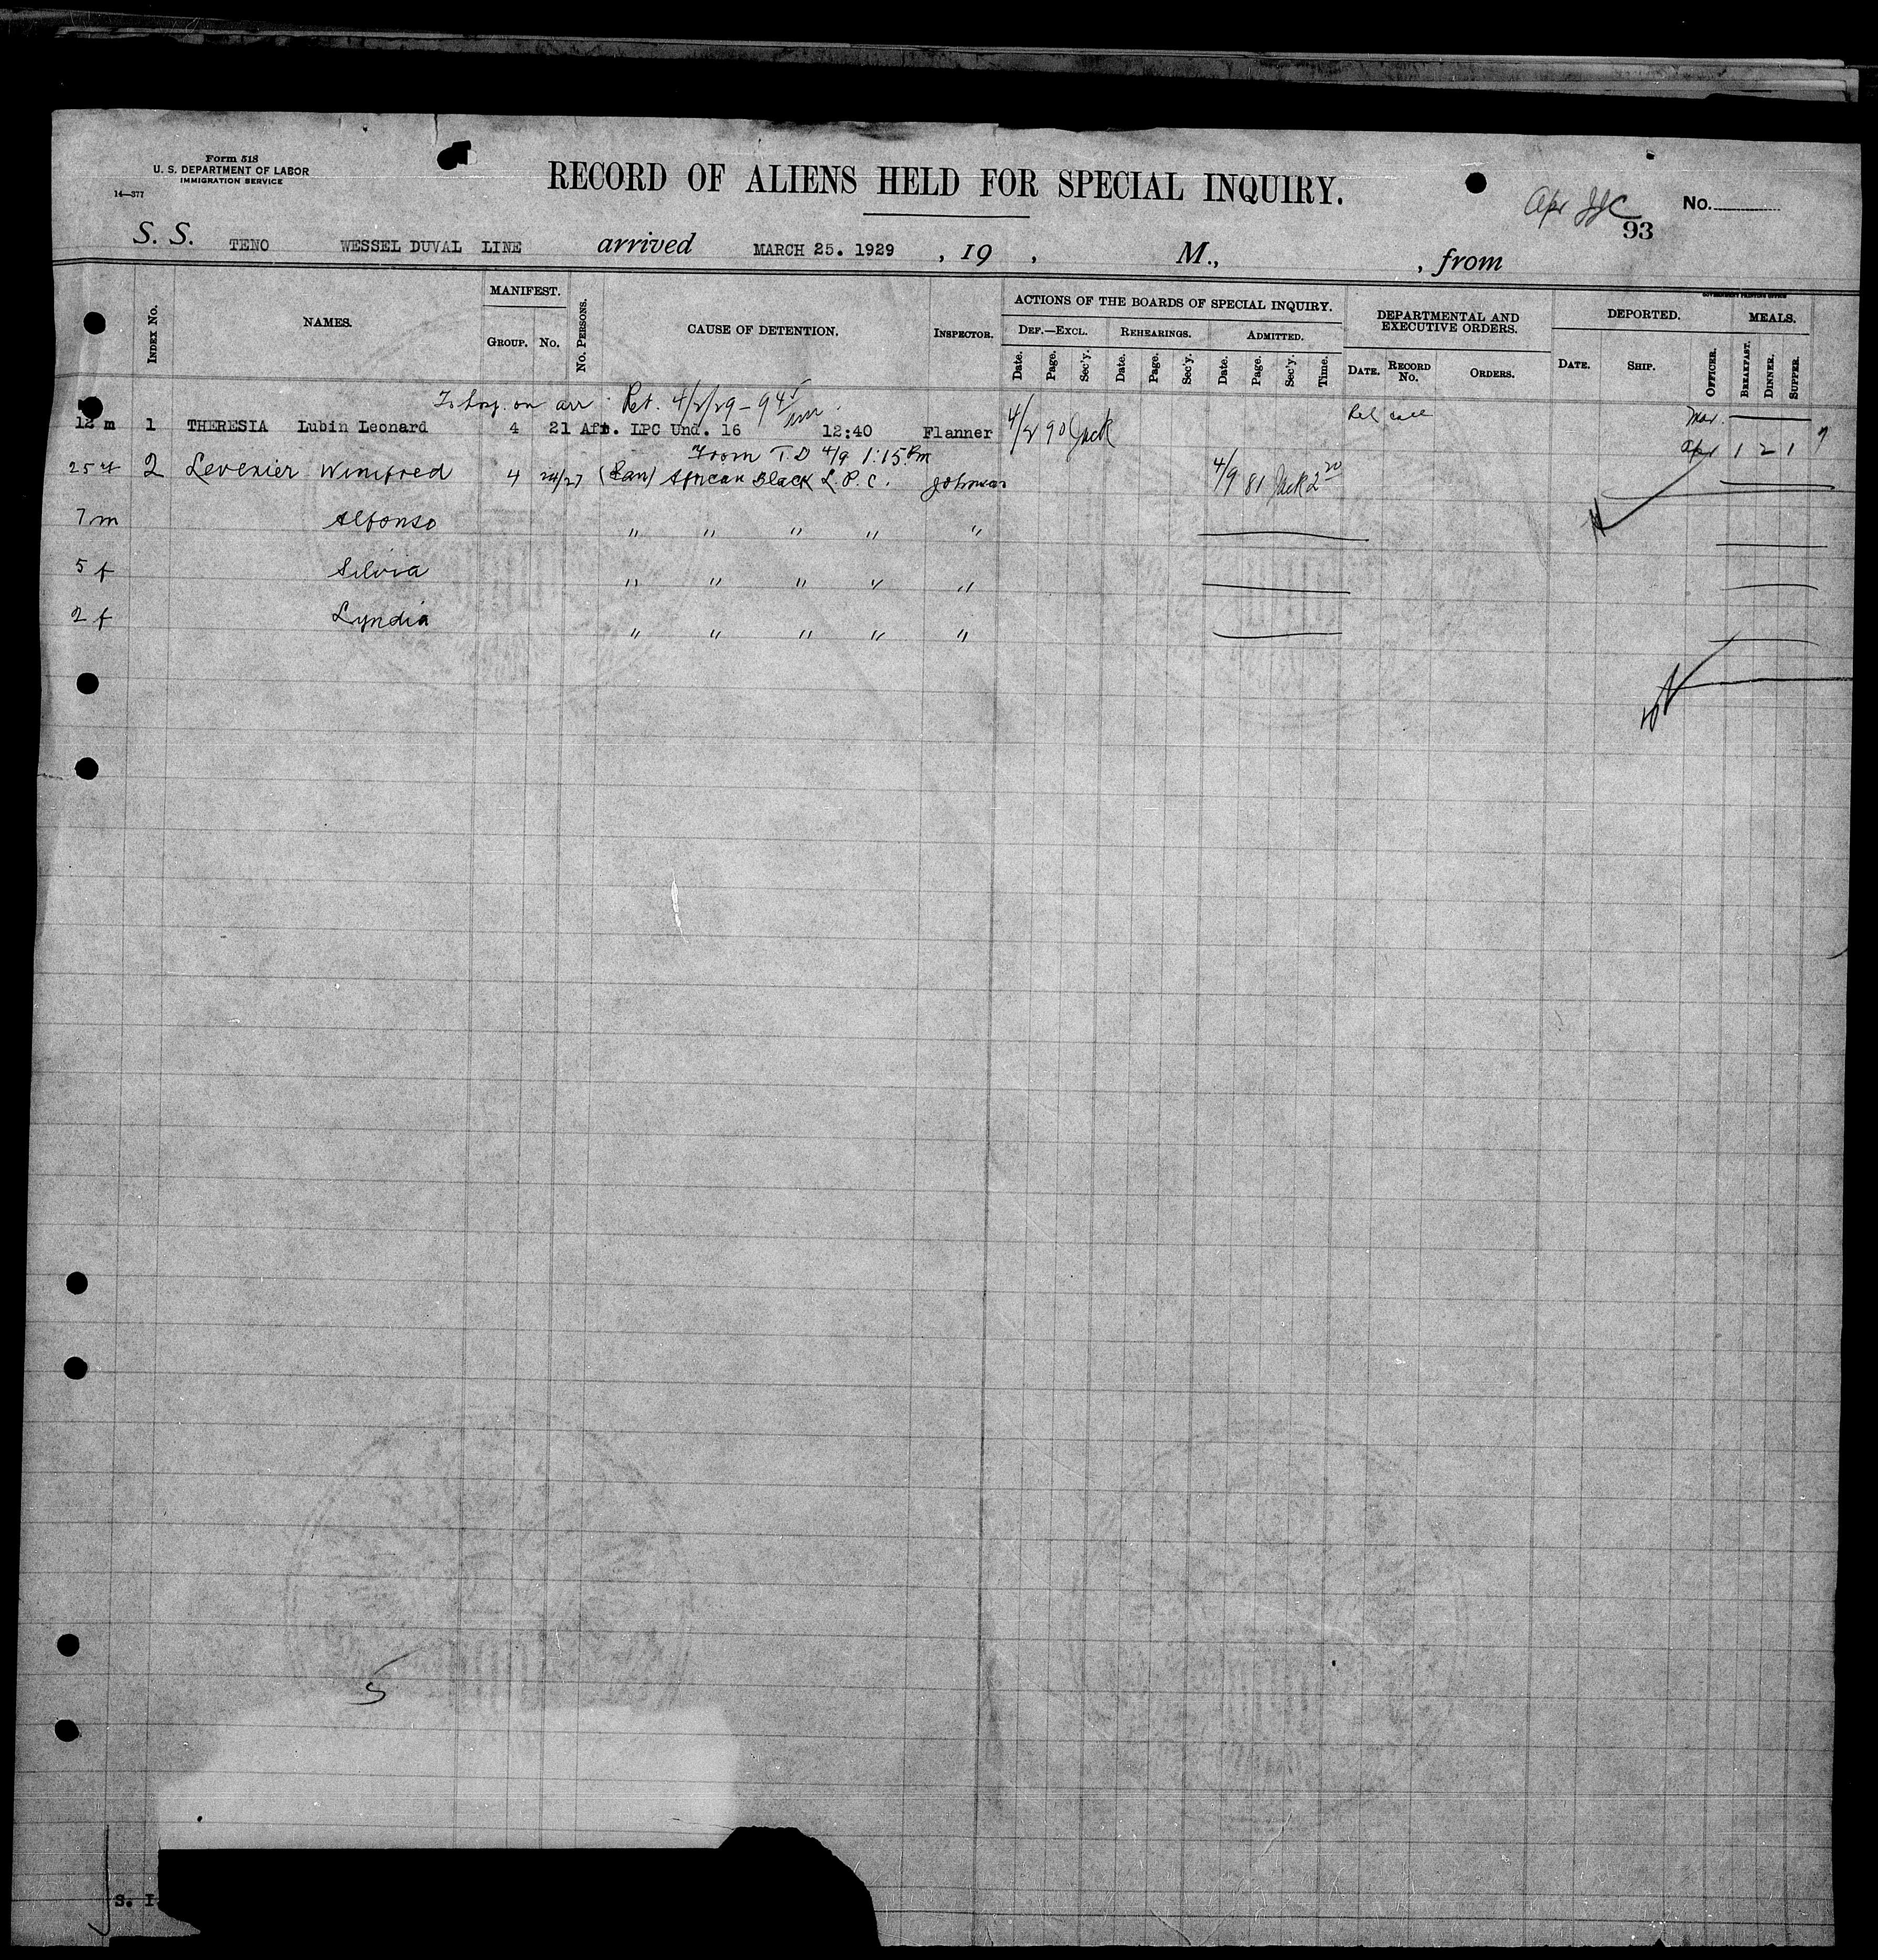 Form 518
U. S. DEPARTMENT OF LABOR
IMMIGRATION SERVICE
14—377
RECORD OF ALIENS HELD FOR SPECIAL INQUIRY.
Apr
No.
93
S. S. TENO WESSEL DUVAL LINE arrived MARCH 25. 1929 , 19 , M., , from
GOVERNMENT PRINTING OFFICE
INDEX No. NAMES. MANIFEST. GROUP. No. No. PERSONS. CAUSE OF DETENTION. INSPECTOR. ACTIONS OF THE BOARDS OF SPECIAL INQUIRY. DEPARTMENTAL AND EXECUTIVE ORDERS. DEPORTED. MEALS.
DEF.—EXCL. REHEARINGS. ADMITTED.
Date. Page. Sec'y. Date. Page. Sec'y. Date. Page. Sec'y. Time. DATE. RECORD No. ORDERS. DATE. SHIP. OFFICER. BREAKFAST. DINNER. SUPPER.
To hosp. on arr. Ret. 4/2/29 - 9 45
12 m 1 THERESIA Lubin Leonard 4 21 Afb. LPC Und. 16 12:40 Flanner 4/2 90 Jack Mar.
Apr 1 2 1
From T.D 4/9 1:15 Pm
25 f 2 Levenier Winifred 4 24/27 African Black L.P.C. Johnson 4/9 81 Jack 2 20
7 m Alfonso " " " " "
5 f Silvia " " " " "
2 f Lyndia " " " " "
5
S. I.